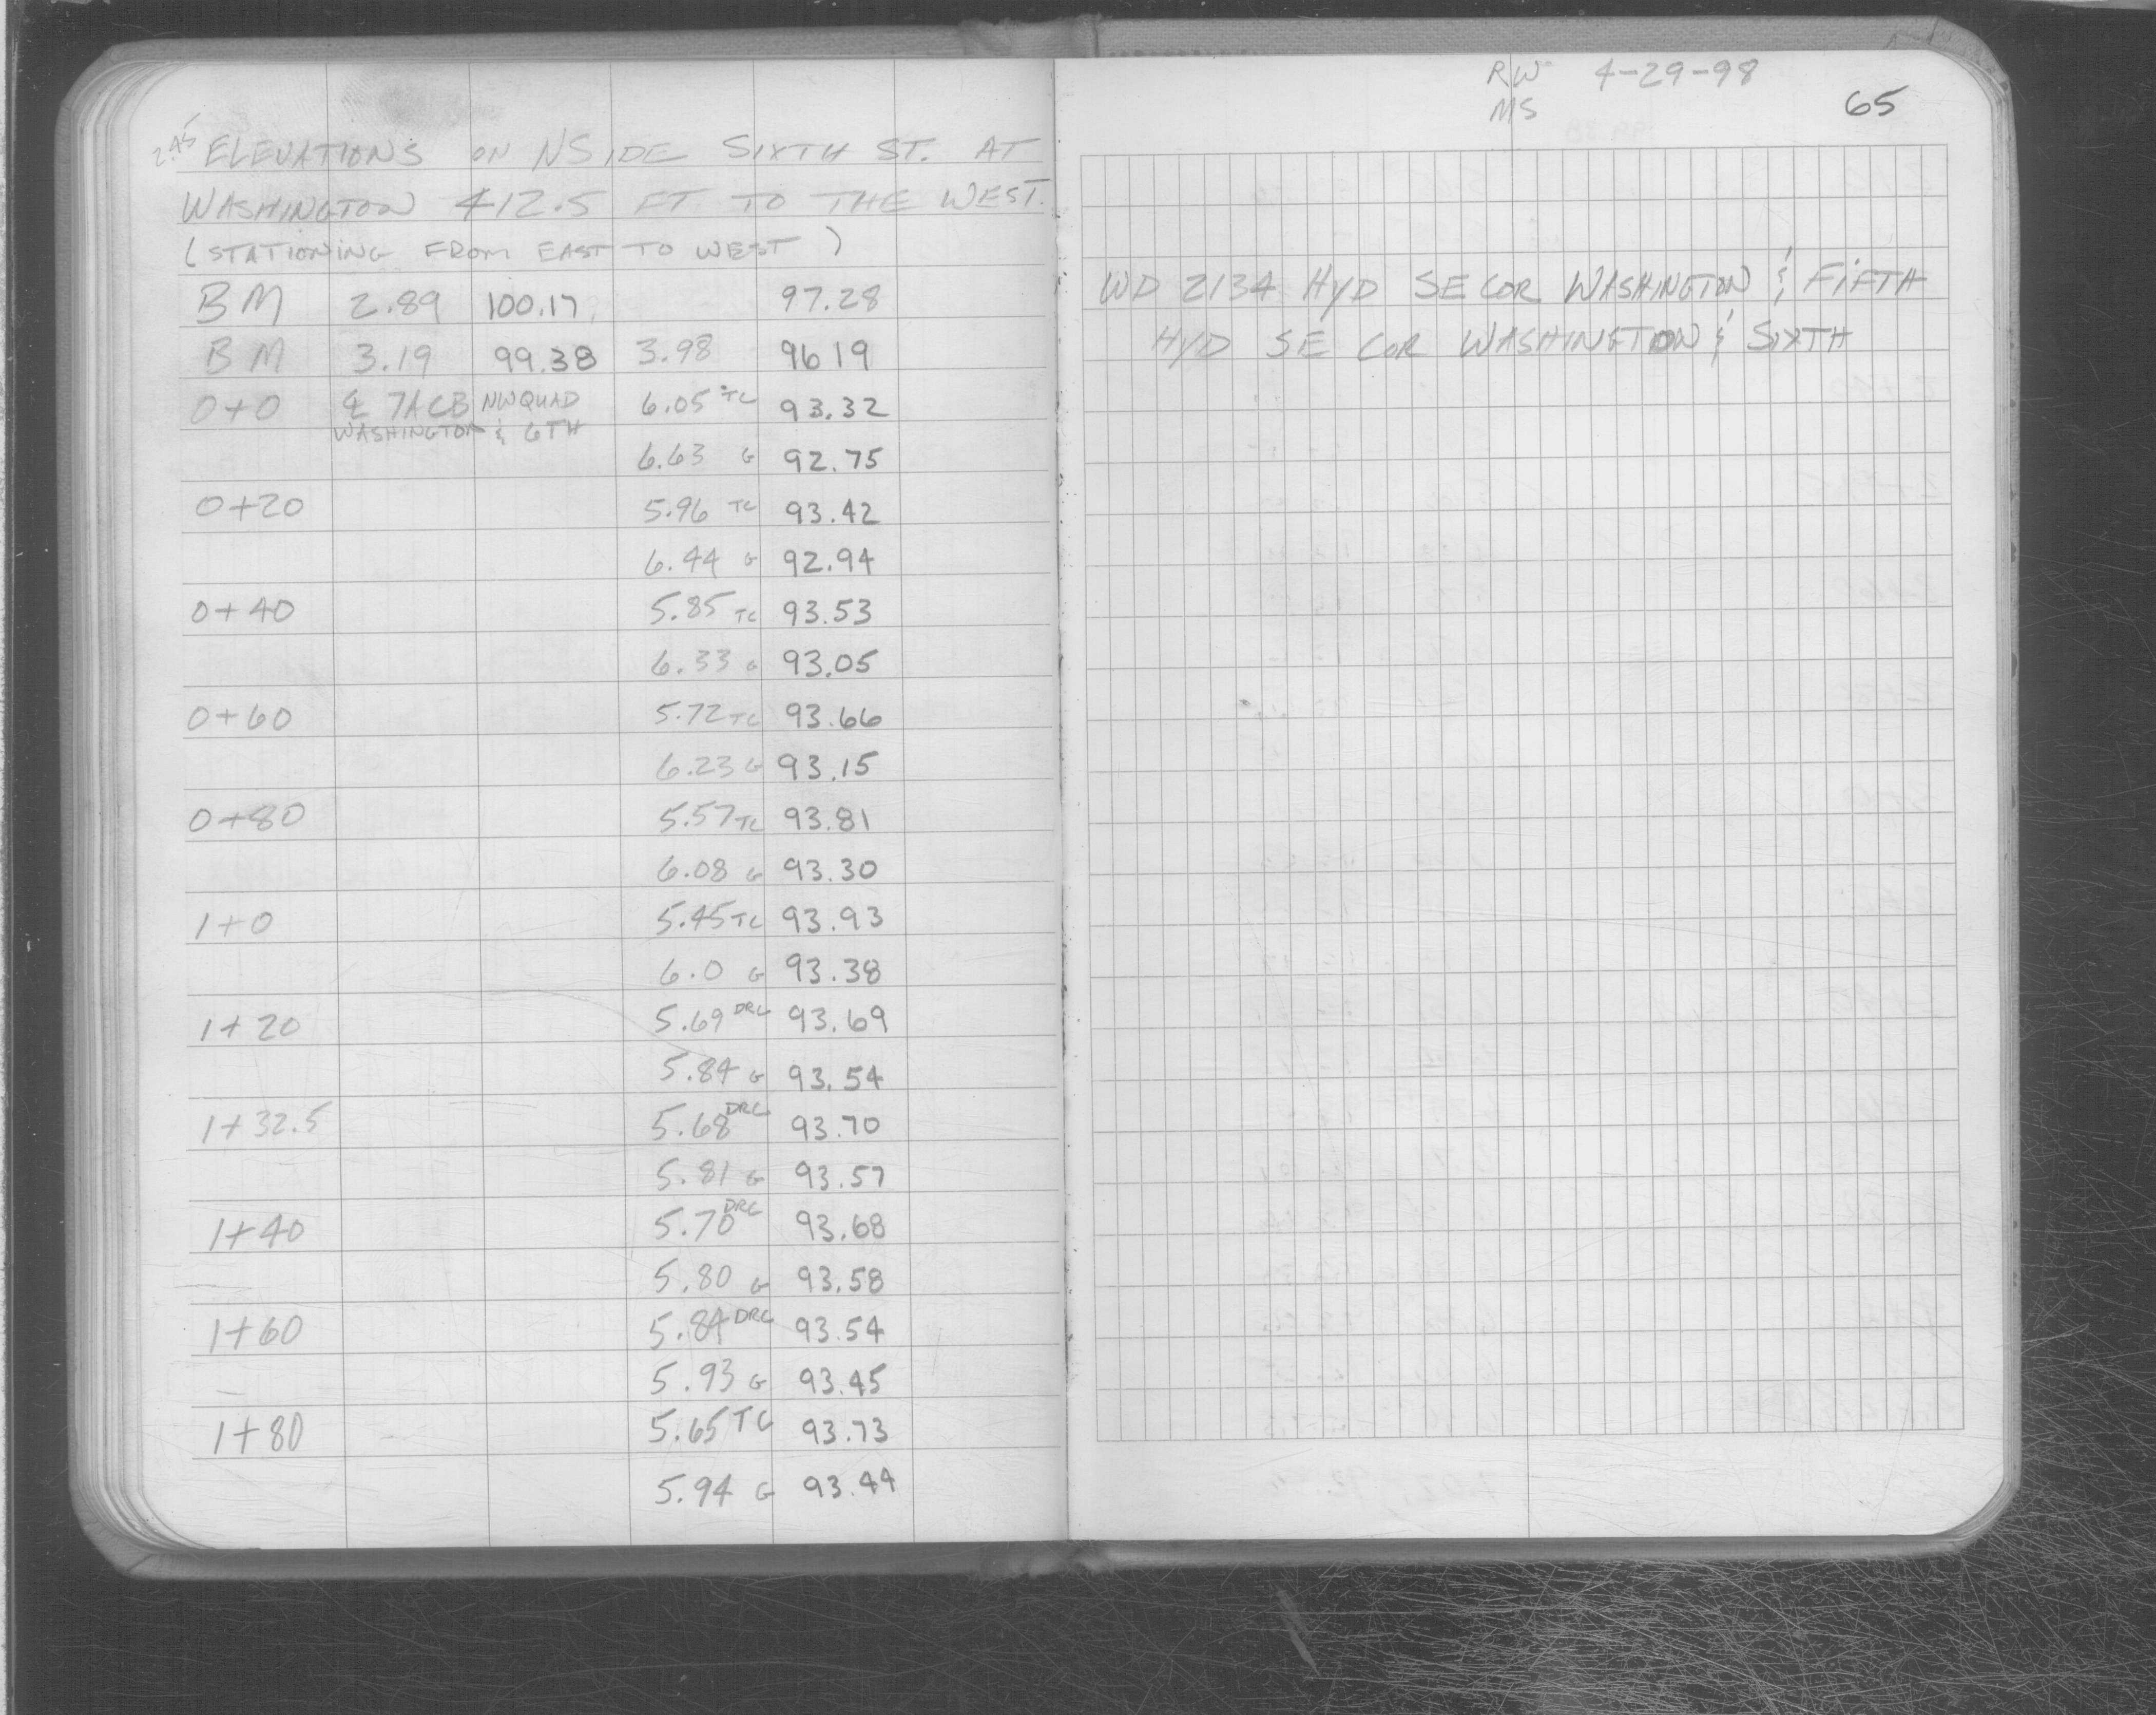 2.45
ELEVATIONS ON N SIDE SIXTH ST. AT
WASHINGTON 412.5 FT TO THE WEST.
(STATIONING FROM EAST TO WEST)
BM 2.89 100.17 97.28
BM 3.19 99.38 3.98 96 19
0+0 ℄ 7A CB NW QUAD 6.05 TC 93.32
WASHINGTON & 6TH
6.63 G 92.75
0+20 5.96 TC 93.42
6.44 G 92.94
0+40 5.85 TC 93.53
6.33 G 93.05
0+60 5.72 TC 93.66
6.23 G 93.15
0+80 5.57 TC 93.81
6.08 G 93.30
1+0 5.45 TC 93.93
6.0 G 93.38
1+20 5.69 DRC 93.69
5.84 G 93.54
1+32.5 5.68 DRC 93.70
5.81 G 93.57
1+40 5.70 DRC 93.68
5.80 G 93.58
1+60 5.84 DRC 93.54
5.93 G 93.45
1+80 5.65 TC 93.73
5.94 G 93.44
RW 4-29-98
MS
65
WD 2134 HYD SE COR WASHINGTON & FIFTH
HYD SE COR WASHINGTON & SIXTH